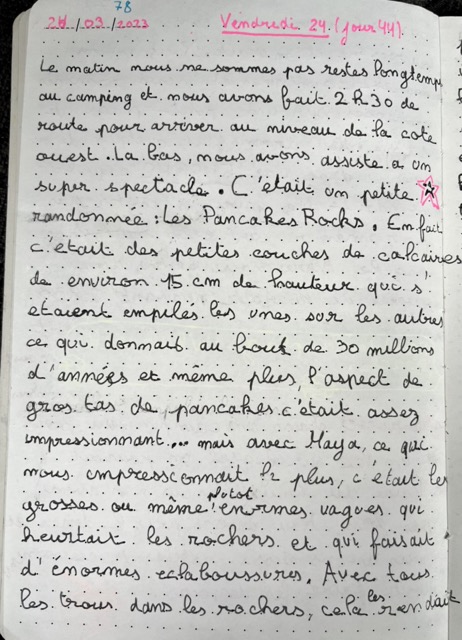 78
24/03/2023 Vendredi 24 (jour 44).
Le matin nous ne sommes pas restes longtemps
au camping et nous avons fait 2h30 de
route pour arriver au niveau de la cote
ouest. La bas, nous avons assiste a un
super spectacle. C'était un petite
randonnée : Les Pancakes Rocks. En fait
c'était des petites couches de calcaires
de environ 15 cm de hauteur qui s'
etaient empilés les unes sur les autres
ce qui donnait au bout de 30 millions
d'années et même plus, l'aspect de
gros tas de pancakes c'était assez
impressionnant... mais avec Maya, ce qui
nous impressionnait le plus, c'était les
plutot
grosses ou même énormes vagues qui
heurtait les rochers et qui faisait
d'énormes eclaboussures. Avec tous
les trous dans les rochers, cela les rendait